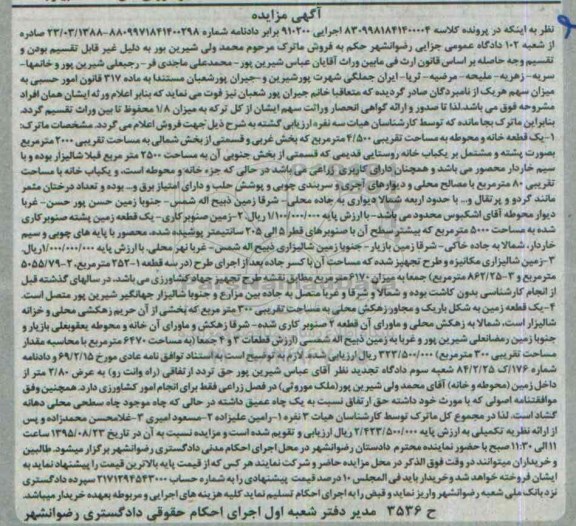 آگهی مزایده
نظر به اینکه در پرونده کلاسه ۸۳۰۹۹۸۱۸۴۱۴۰۰۰۰۴ اجرایی ۹۱۰۲۰۰ برابر دادنامه شماره ۸۸۰۹۹۷۱۸۴۱۴۰۰۲۹۸-۲۳/۰۳/۱۳۸۸ صادره
از شعبه ۱۰۲ دادگاه عمومی جزایی رضوانشهر حکم به فروش ماترک مرحوم محمد ولی شیرین پور به دلیل غیر قابل تقسیم بودن و
تقسیم وجه حاصله بر اساس قانون ارث فی مابین وراث آقایان عباس شیرین پور - محمدعلی ماجدی فر - رجبعلی شیرین پور و خانمها-
سریه- زهریه- ملیحه- مرضیه- ثریا- ایران جملگی شهرت پورشیرین و -جیران پورشعبان مستندا به ماده ۳۱۷ قانون امور حسبی به
میزان سهم هریک از نامبردگان صادر گردیده که متعاقبا خانم جیران پور شعبان نیز فوت می نماید که بنابر اعلام ورثه ایشان همان افراد
مشروحه فوق می باشد. لذا تا صدور و ارائه گواهی انحصار وراثت سهم ایشان از کل ترکه به میزان ۱/۸ محفوظ تا بین وراث تقسیم گردد.
بنابراین ماترک بجا مانده که توسط کارشناسان هیات سه نفره ارزیابی گشته به شرح ذیل جهت فروش اعلام می گردد. مشخصات ماترک:
۱-یک قطعه خانه و محوطه به مساحت تقریبی ۴/۵۰۰ مترمربع که بخش غربی و قسمتی از بخش شمالی به مساحت تقریبی ۲۰۰۰ مترمربع
بصورت پشته و مشتمل بر یکباب خانه روستایی قدیمی که قسمتی از بخش جنوبی آن به مساحت ۲۵۰۰ متر مربع قبلا شالیزار بوده و با
سیم خاردار محصور می باشد و همچنان دارای کاربری زراعی می باشد در حالی که جزء خانه و محوطه است، و یکباب خانه با مساحت
تقریبی ۸۰ مترمربع با مصالح محلی و دیوارهای آجری و سربندی چوبی و پوشش حلب و دارای امتیاز برق و.. بوده و تعداد درختان مثمر
مانند گردو و پرتقال و.. با حدود اربعه شمالا دیواری به جاده محلی- شرقا زمین ذبیح اله شمس- جنوبا زمین حسن پور حسن- غربا
دیوار محوطه آقای اشکبوس محدود می باشد- با ارزش پایه ۱/۱۰۰/۰۰۰/۰۰۰ ریال.۲-زمین صنوبرکاری- یک قطعه زمین پشته صنوبرکاری
شده به مساحت ۵۰۰۰ مترمربع که بیشتر سطح آن با صنوبرهای قطر ۵ الی ۲۰۵ سانتیمتر پوشیده شده، محصور با پایه های چوبی و سیم
خاردار، شمالا به جاده خاکی- شرقا زمین بازیار- جنوبا زمین شالیزاری ذبیح اله شمس- غربا نهر محلی. با ارزش پایه ۱/۰۰۰/۰۰۰/۰۰۰ریال.
۳-زمین شالیزاری مکانیزه و طرح تجهیز شده که مساحت آن با کسر جاده بعد از اجرای طرح (در سه قطعه ۱-۲۵۲ مترمربع، ۲-۵۰۵۵/۷۹
مترمربع و ۳-۸۶۲/۲۵ مترمربع) جمعا به میزان ۶۱۷۰ مترمربع مطابق نقشه طرح تجهیز جهادکشاورزی می باشد. در سالهای گذشته قبل
از انجام کارشناسی بدون کاشت بوده و شمالا و شرقا و غربا متصل به جاده بین مزارع و جنوبا شالیزار جهانگیر شیرین پور متصل است.
۴-یک قطعه زمین به شکل باریک و مجاور زهکش محلی به مساحت تقریبی ۳۰۰ متر مربع که بخشی از آن حریم زهکشی محلی و خزانه
شالیزار است، شمالا به زهکش محلی و ماورای آن قطعه ۲ صنوبر کاری شده- شرقا زهکش و ماورای آن خانه و محوطه یعقوبعلی بازیار و
جنوبا زمین رمضانعلی شیرین پور و غربا به زمین ذبیح اله شمس (ارزش قطعات ۳ و ۴ جمعا (به مساحت ۶۴۷۰ مترمربع با محاسبه مقدار
مساحت تقریبی ۳۰۰ مترمربع) ۳۲۳/۵۰۰/۰۰۰ ریال ارزیابی شد. لازم به توضیح است به استناد توافق نامه عادی مورخ ۶۹/۲/۱۵ و دادنامه
شماره ۱۷۶/ک ۸۴/۲/۲۵ شعبه سوم دادگاه تجدید نظر آقای عباس شیرین پور حق تردد ارتفاقی (راه وانت رو) به عرض ۲/۸۰ متر از
داخل زمین (محوطه و خانه) آقای محمد ولی شیرین پور(ملک موروثی) در فصل زراعی فقط برای انجام امور کشاورزی دارد. همچنین وفق
موافقتنامه اصولی که با مورث خود داشته حق ارتفاق نسبت به یک چاه عمیق داشته در حالی که چاه موجود چاه سطحی محلی دهانه
گشاد است. لذا در مجموع کل ماترک توسط کارشناسان هیات ۳ نفره ۱-رامین علیزاده ۲-مسعود امیری ۳-غلامحسن محمدزاده و پس
از ارائه نظریه تکمیلی به ارزش پایه ۲/۴۲۳/۵۰۰/۰۰۰ ریال ارزیابی و تقویم شده است و مزایده نسبت به آن در تاریخ ۱۳۹۵/۰۸/۲۳ ساعت
۱۱:۳۰ الی ۱۱ صبح با حضور نماینده محترم دادستان رضوانشهر در محل اجرای احکام مدنی دادگستری رضوانشهر برگزار میشود. طالبین
و خریداران میتوانند در وقت فوق الذکر در محل مزایده حاضر و شرکت نمایند هر کس که از قیمت پایه بالاترین قیمت را پیشنهاد نماید به
ایشان فروخته خواهد شد و خریدار باید فی المجلس ۱۰ درصد قیمت پیشنهادی را به شماره حساب ۲۱۷۱۲۹۴۵۴۳۰۰۰ سپرده دادگستری
نزد بانک ملی شعبه رضوانشهر واریز نماید و قبض را به اجرای احکام تسلیم نماید کلیه هزینه های اجرایی و مربوطه بعهده خریدار میباشد.
ح ۳۵۳۶ مدیر دفتر شعبه اول اجرای احکام حقوقی دادگستری رضوانشهر